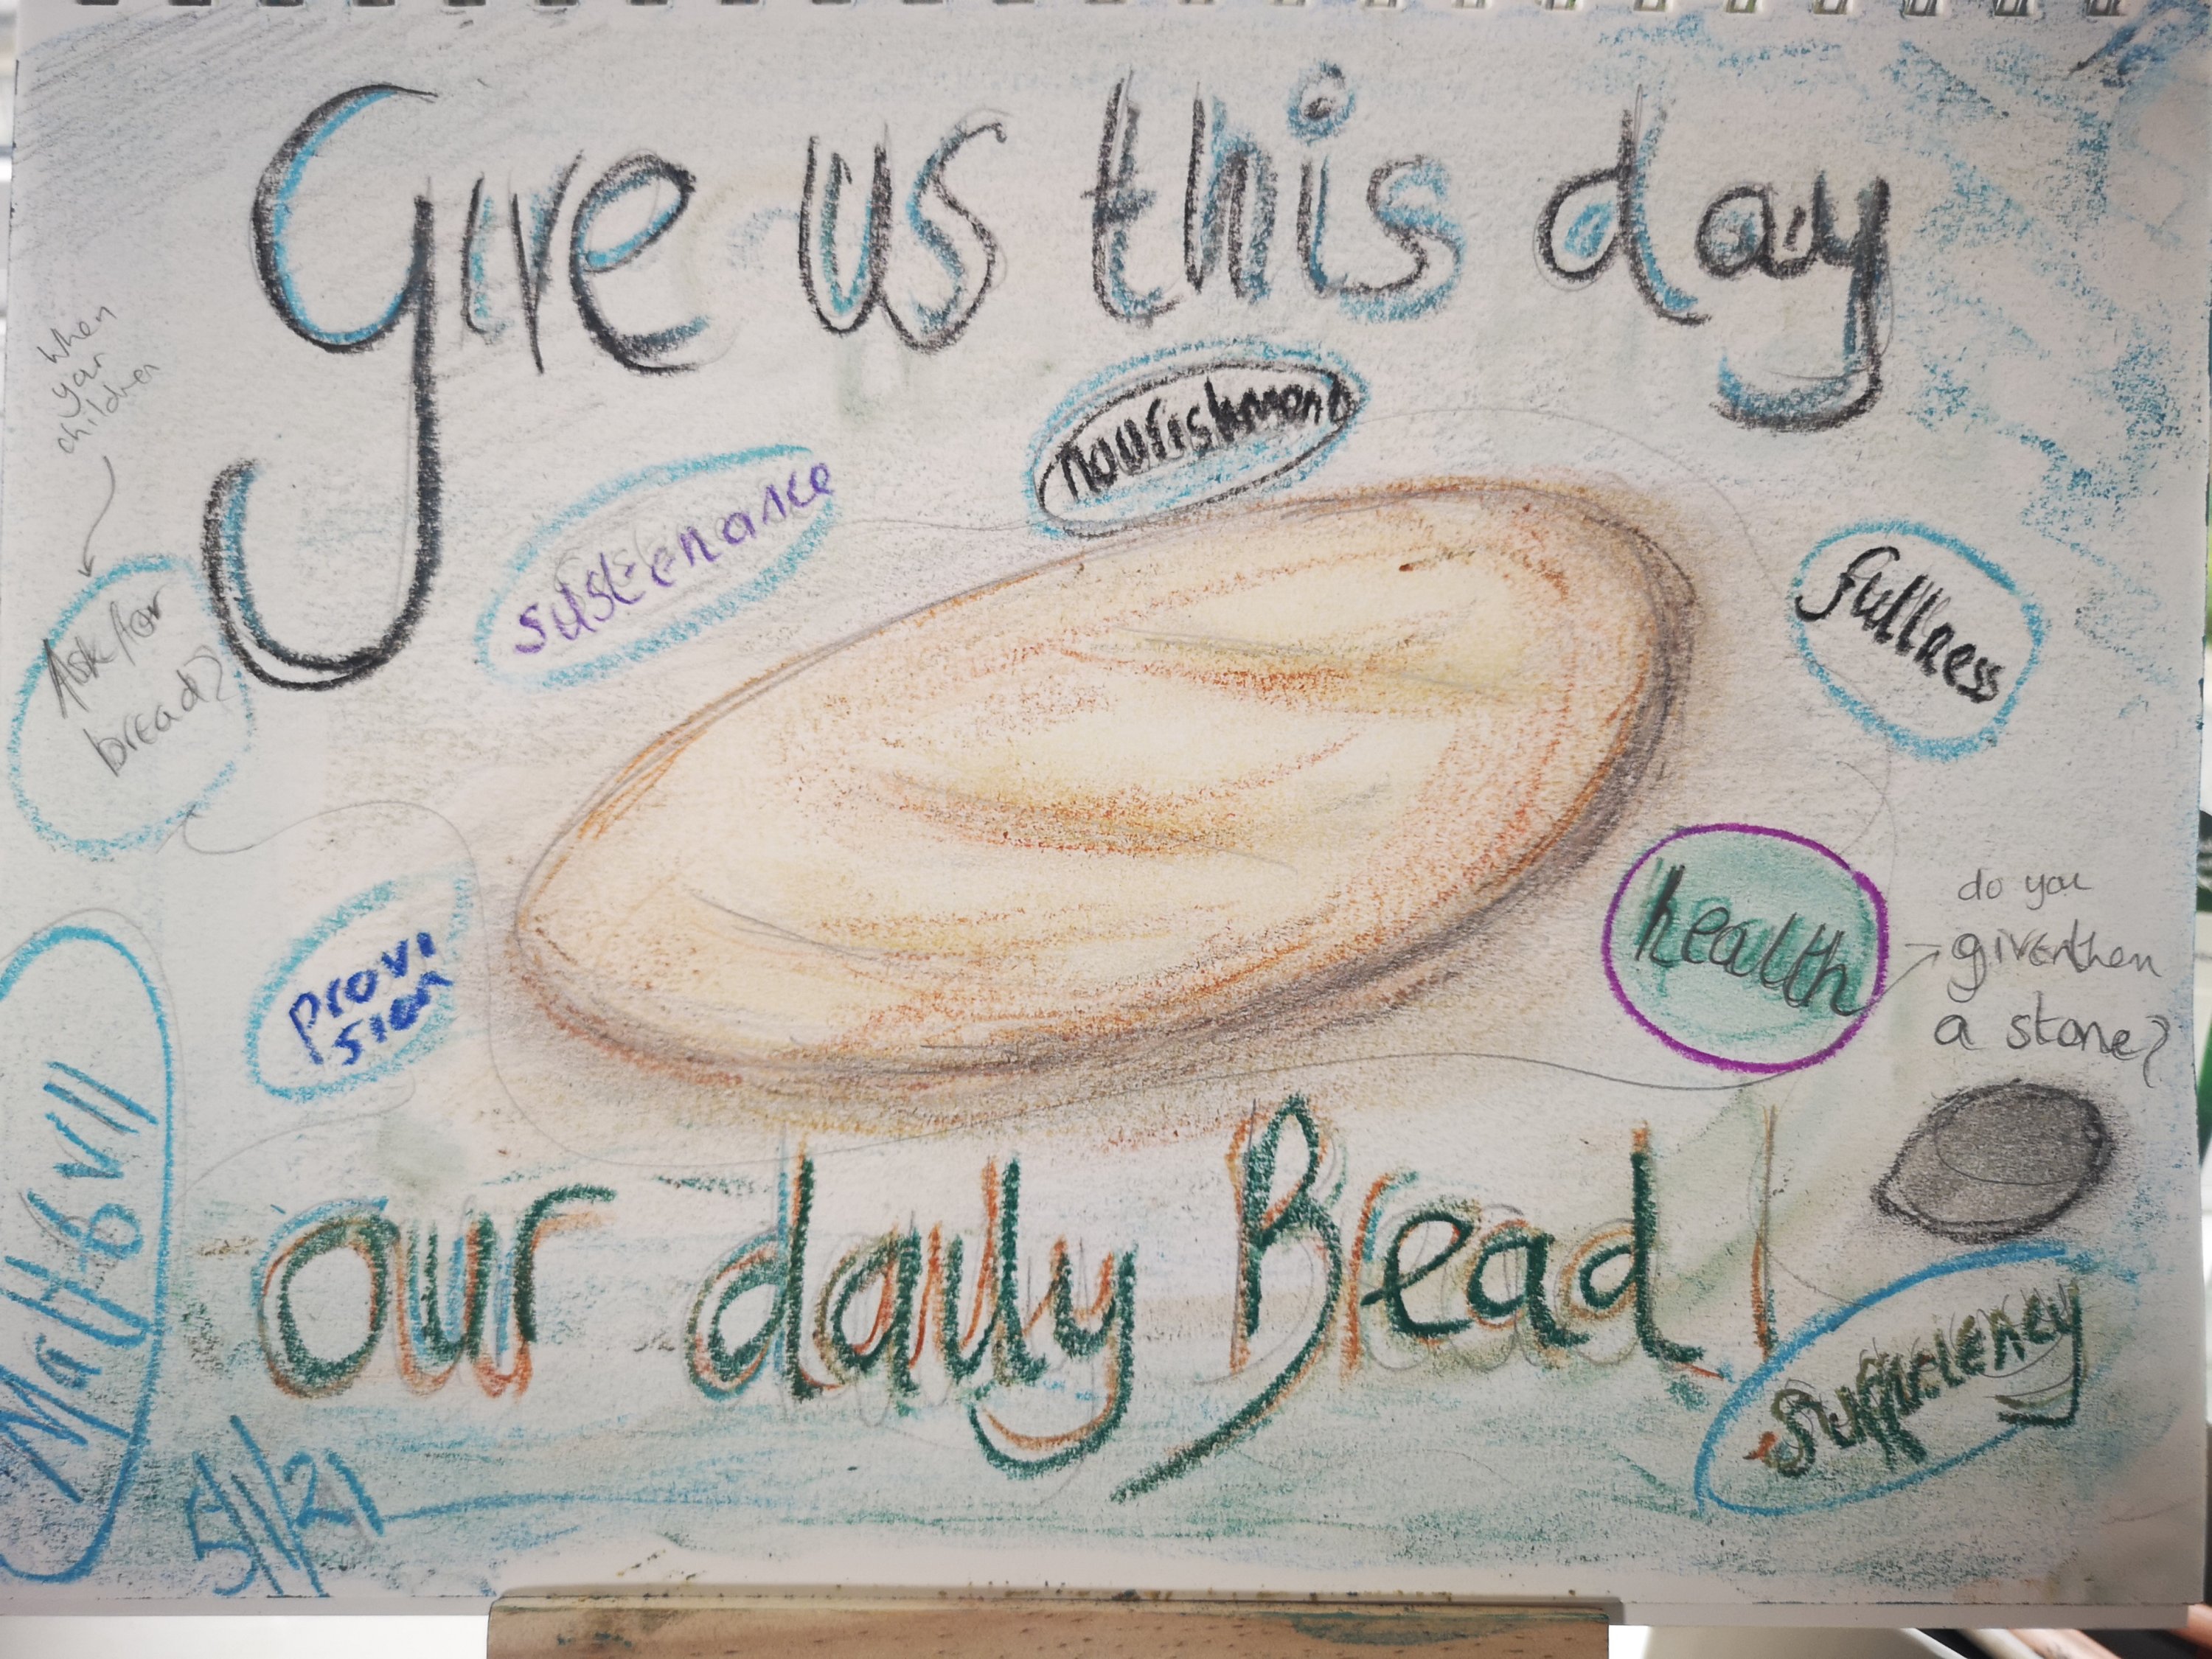 Give us this day
when
your
children
nourishment
sustenance
fullness
Ask for
bread?
health
do you
give them
a stone?
provi
sion
Matt 6 v 11
our daily Bread
sufficiency
5/1/21